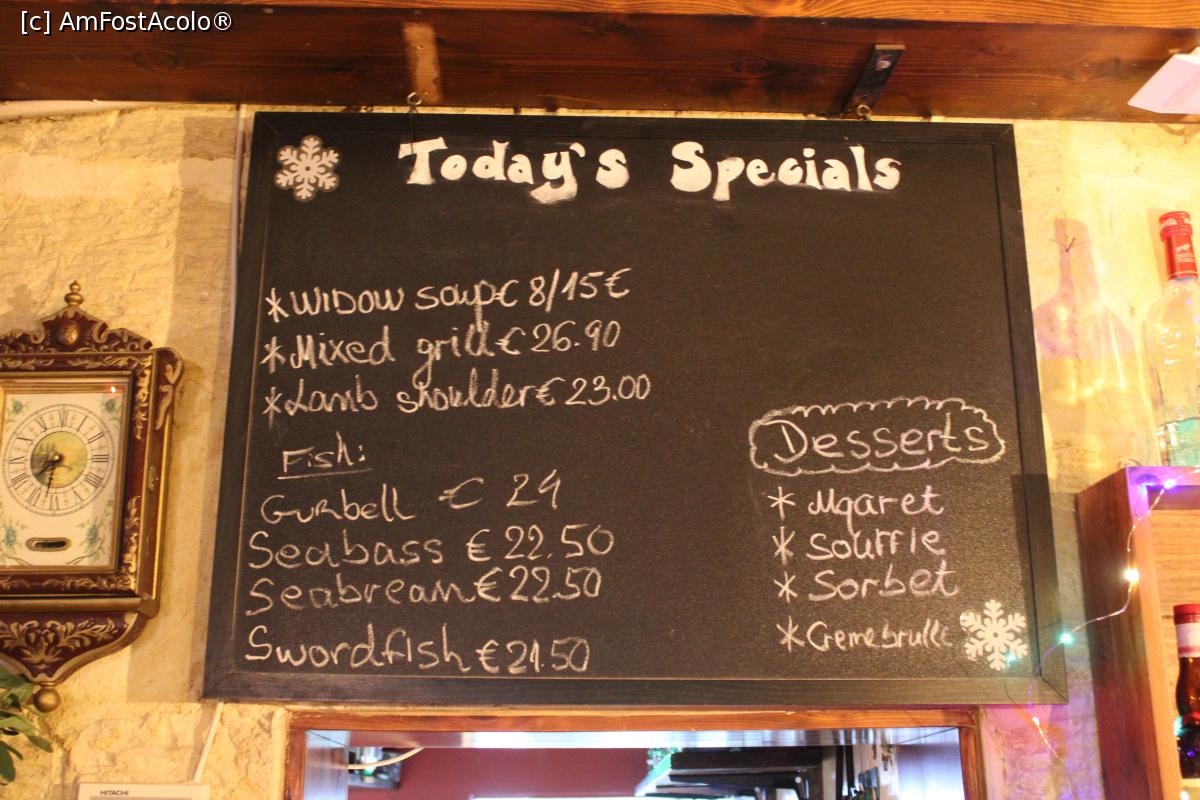 [c] AmFostAcolo®
Today's Specials
*WIDOW soup€ 8/15€
*Mixed grill€26.90
*Lamb shoulder€23.00
Fish:
Gurbell € 24
Seabass €22.50
Seabream€22.50
Swordfish€21.50
Desserts
* Mqaret
* Souffle
* Sorbet
*Cremebrulle
HITACHI